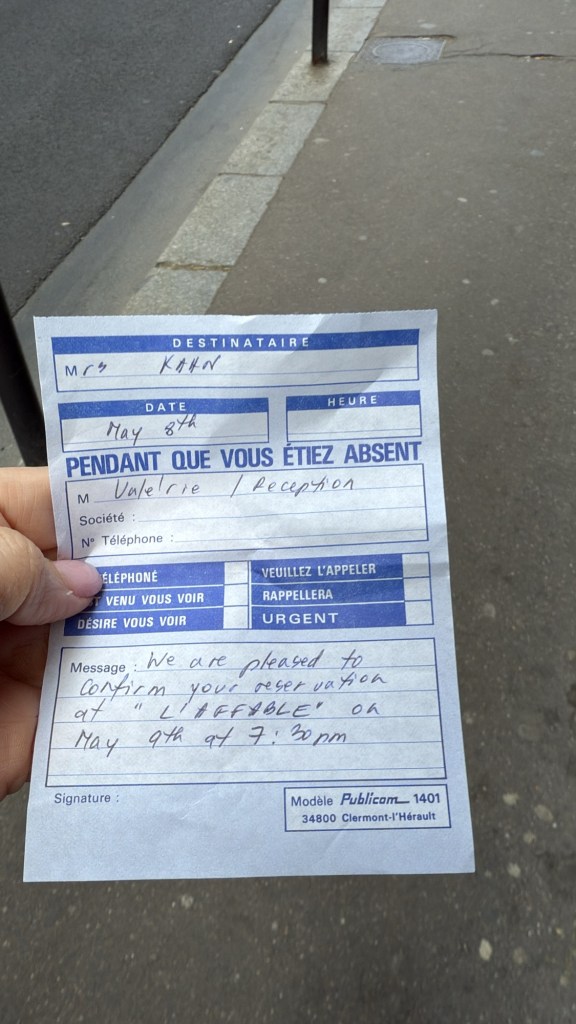 DESTINATAIRE
Mrs KAHN
DATE
HEURE
May 8th
PENDANT QUE VOUS ÉTIEZ ABSENT
M Valérie / Reception
Société :
N° Téléphone :
ÉLÉPHONÉ
VEUILLEZ L'APPELER
T VENU VOUS VOIR
RAPPELLERA
DÉSIRE VOUS VOIR
URGENT
Message : We are pleased to
confirm your reservation
at "L'AFFABLE" on
May 9th at 7:30pm
Signature :
Modèle Publicom 1401
34800 Clermont-l'Hérault